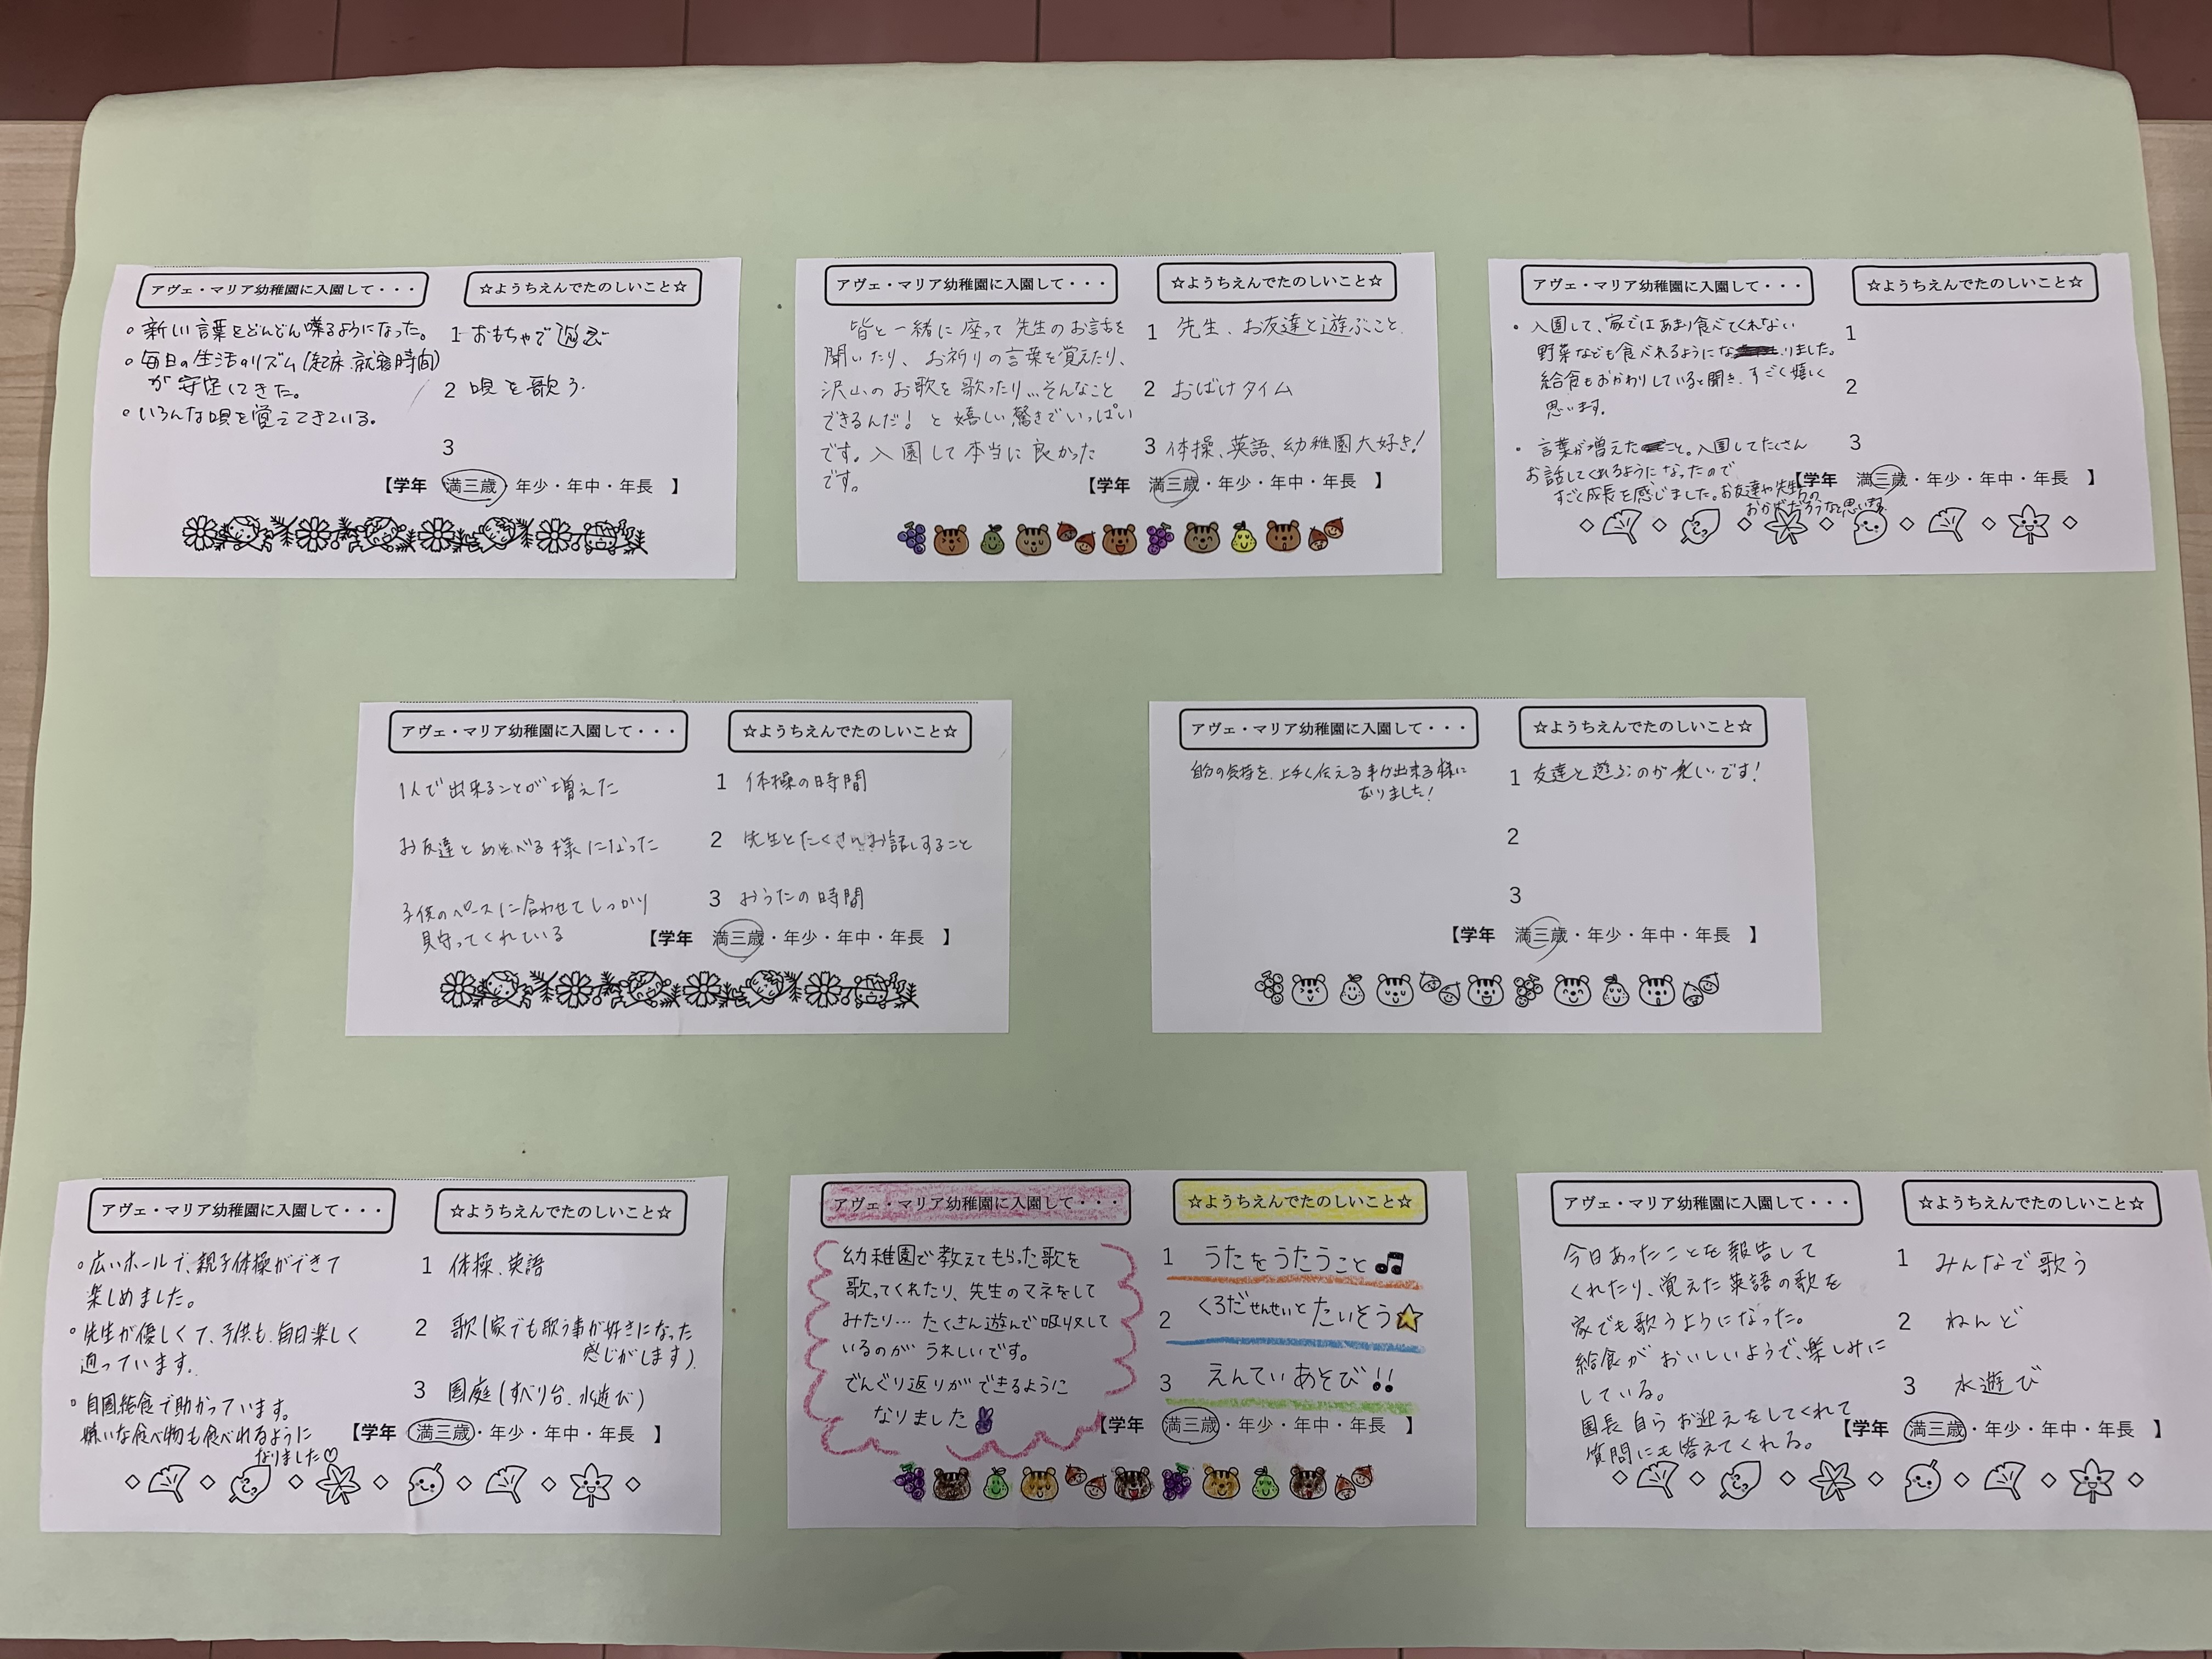 アヴェ・マリア幼稚園に入園して・・・
☆ようちえんでたのしいこと☆
。新しい言葉をどんどん喋るようになった。
。毎日の生活のリズム(起床・就寝時間)
が安定してきた。
。いろんな唄を覚えてきている。
1 おもちゃで遊ぶ
2 唄を歌う
3
【学年 満三歳・年少・年中・年長 】
アヴェ・マリア幼稚園に入園して・・・
☆ようちえんでたのしいこと☆
皆と一緒に座って先生のお話を
聞いたり、お祈りの言葉を覚えたり、
沢山のお歌を歌ったり...そんなこと
できるんだ!と嬉しい驚きでいっぱい
です。入園して本当に良かった
です。
1 先生、お友達と遊ぶこと
2 おばけタイム
3 体操、英語、幼稚園大好き!
【学年 満三歳・年少・年中・年長 】
アヴェ・マリア幼稚園に入園して・・・
☆ようちえんでたのしいこと☆
・入園して、家ではあまり食べてくれない
野菜なども食べれるようになりました。
給食もおかわりしていると聞き、すごく嬉しく
思います。
・言葉が増えたこと。入園してたくさん
お話してくれるようになったので
すごく成長を感じました。お友達や先生方の
おかげだろうなと思います。
1
2
3
【学年 満三歳・年少・年中・年長 】
アヴェ・マリア幼稚園に入園して・・・
☆ようちえんでたのしいこと☆
1人で出来ることが増えた
お友達とあそべる様になった
子供のペースに合わせてしっかり
見守ってくれている
1 体操の時間
2 先生とたくさんお話しすること
3 おうたの時間
【学年 満三歳・年少・年中・年長 】
アヴェ・マリア幼稚園に入園して・・・
☆ようちえんでたのしいこと☆
自分の気持を、上手く伝える事が出来る様に
なりました!
1 友達と遊ぶのが楽しいです!
2
3
【学年 満三歳・年少・年中・年長 】
アヴェ・マリア幼稚園に入園して・・・
☆ようちえんでたのしいこと☆
。広いホールで、親子体操ができて
楽しめました。
。先生が優しくて、子供も毎日楽しく
通っています。
。自園給食で助かっています。
嫌いな食べ物も食べれるように
なりました♡
1 体操、英語
2 歌(家でも歌う事が好きになった
感じがします)
3 園庭(すべり台、水遊び)
【学年 満三歳・年少・年中・年長 】
アヴェ・マリア幼稚園に入園して・・・
☆ようちえんでたのしいこと☆
幼稚園で教えてもらった歌を
歌ってくれたり、先生のマネをして
みたり… たくさん遊んで吸収して
いるのが うれしいです。
でんぐり返りができるように
なりました
1 うたをうたうこと♫
2 くろだせんせいとたいそう☆
3 えんていあそび!!
【学年 満三歳・年少・年中・年長 】
アヴェ・マリア幼稚園に入園して・・・
☆ようちえんでたのしいこと☆
今日あったことを報告して
くれたり、覚えた英語の歌を
家でも歌うようになった。
給食がおいしいようで、楽しみに
している。
園長自らお迎えをしてくれて
質問にも答えてくれる。
1 みんなで歌う
2 ねんど
3 水遊び
【学年 満三歳・年少・年中・年長 】